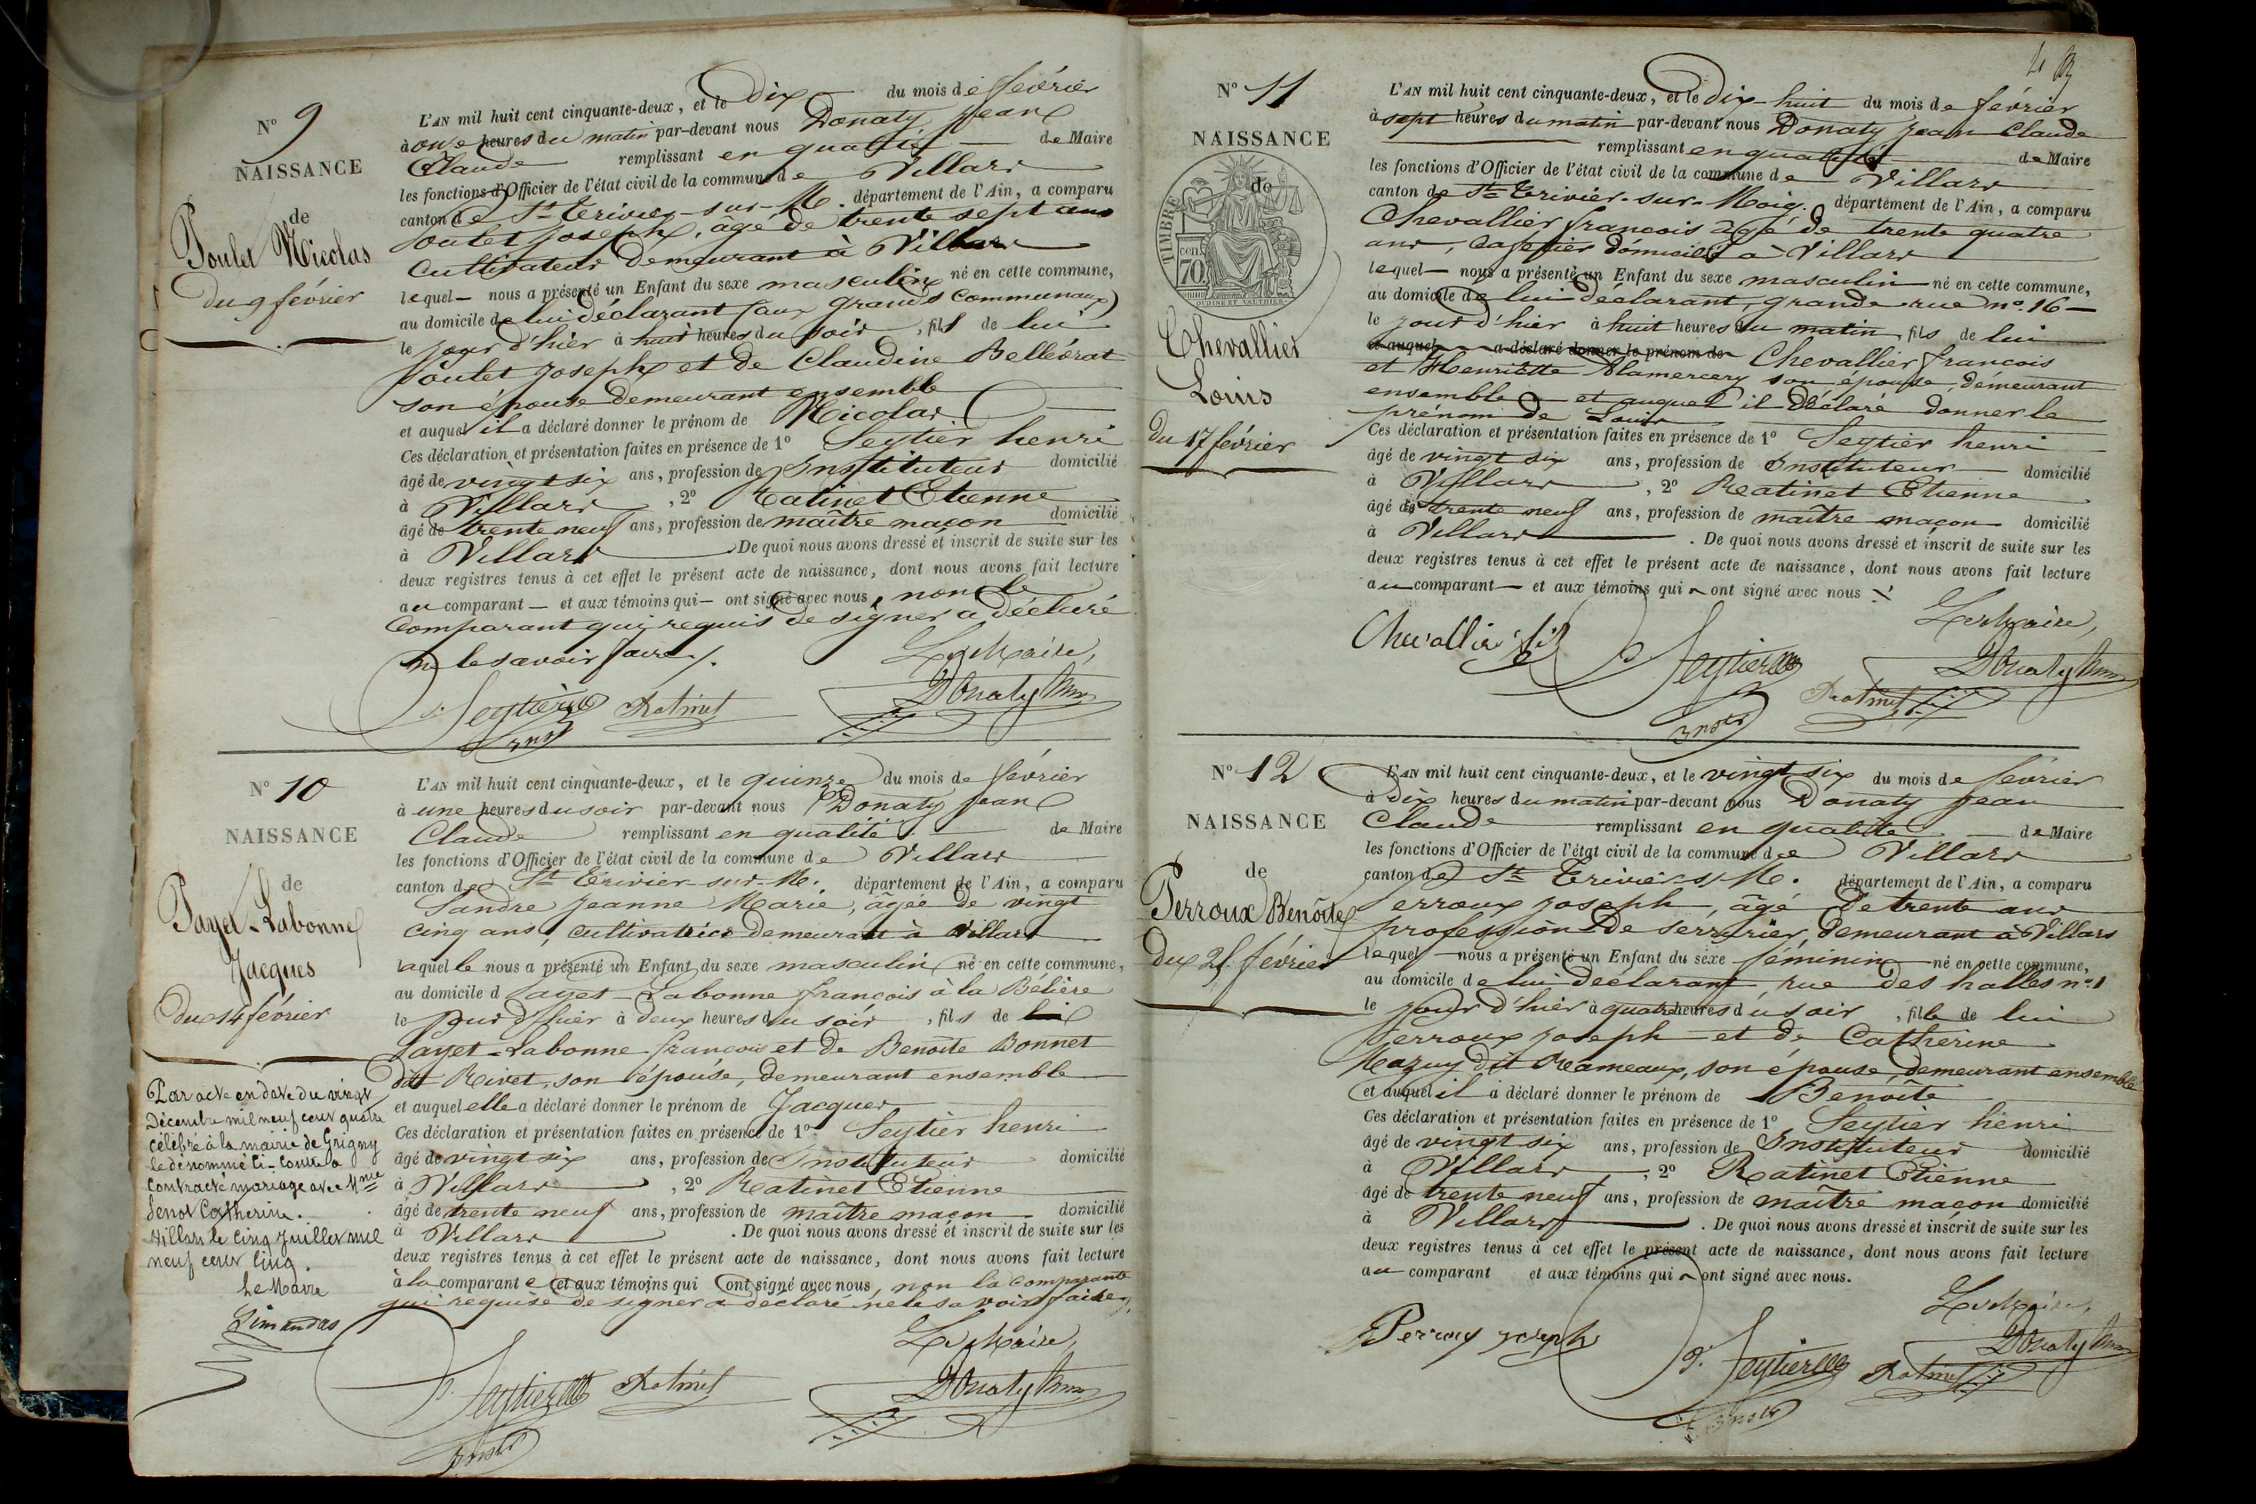 N° 9
NAISSANCE
de
Poulet Nicolas
du 9 février
L'AN mil huit cent cinquante-deux, et le Dix du mois de février
à onze heures du matin par-devant nous Donaty Jean
Claude remplissant en qualité de Maire
les fonctions d'Officier de l'état civil de la commune de Villars
canton de St Trivier-sur-M. département de l'Ain, a comparu
Poulet Joseph, âgé de trente sept ans
Cultivateur demeurant à Villars
lequel nous a présenté un Enfant du sexe masculin né en cette commune,
au domicile de lui déclarant (aux grands Communaux)
le jour d'hier à huit heures du soir, fils de lui
Poulet Joseph et de Claudine Belleérat
son épouse demeurant ensemble
et auquel il a déclaré donner le prénom de Nicolas
Ces déclaration et présentation faites en présence de 1° Seytier henri
âgé de vingt six ans, profession de Instituteur domicilié
à Villars, 2° Ratinet Etienne
âgé de trente neuf ans, profession de maître maçon domicilié
à Villars De quoi nous avons dressé et inscrit de suite sur les
deux registres tenus à cet effet le présent acte de naissance, dont nous avons fait lecture
au comparant et aux témoins qui ont signé avec nous, non le
Comparant qui requis de signer a déclaré
ne le savoir faire.
Le Maire,
Seytier Ratinet Donaty
N° 10
NAISSANCE
de
Payet-Labonne
Jacques
Du 14 février
Par acte en date du vingt
Décembre mil neuf cent quatre
célébré à la mairie de Grigny
le dénommé ci-contre a
Contracté mariage avec Mme
Venot Catherine.
Villars le cinq juillet mil
neuf cent cinq.
Le Maire
L'AN mil huit cent cinquante-deux, et le quinze du mois de février
à une heures du soir par-devant nous Donaty Jean
Claude remplissant en qualité de Maire
les fonctions d'Officier de l'état civil de la commune de Villars
canton de St Trivier-sur-M. département de l'Ain, a comparu
Sandre Jeanne Marie, âgée de vingt
cinq ans, cultivatrice demeurant à Villars
laquelle nous a présenté un Enfant du sexe masculin né en cette commune,
au domicile d Payet-Labonne françois à la Bélière
le jour d'hier à deux heures du soir, fils de lui
Payet-Labonne françois et de Benoîte Bonnet
dit Rivet, son épouse, demeurant ensemble
et auquel elle a déclaré donner le prénom de Jacques
Ces déclaration et présentation faites en présence de 1° Seytier henri
âgé de vingt six ans, profession de Instituteur domicilié
à Villars, 2° Ratinet Etienne
âgé de trente neuf ans, profession de maître maçon domicilié
à Villars. De quoi nous avons dressé et inscrit de suite sur les
deux registres tenus à cet effet le présent acte de naissance, dont nous avons fait lecture
à la comparante et aux témoins qui ont signé avec nous, non la comparante
qui requise de signer a déclaré ne le savoir faire.
Le Maire,
Seytier Ratinet Donaty
N° 11
NAISSANCE
de
TIMBRE
70 cen.
Chevallier
Louis
Du 17 février
L'AN mil huit cent cinquante-deux, et le Dix-huit du mois de février
à sept heures du matin par-devant nous Donaty Jean Claude
remplissant en qualité de Maire
les fonctions d'Officier de l'état civil de la commune de Villars
canton de St Trivier-sur-Moig. département de l'Ain, a comparu
Chevallier françois âgé de trente quatre
ans, cafetier domicilié à Villars
lequel nous a présenté un Enfant du sexe masculin né en cette commune,
au domicile de lui déclarant, grande rue n° 16
le jour d'hier à huit heures du matin, fils de lui
et auquel a déclaré donner le prénom de Chevallier françois
et Henriette Alamercery son épouse, demeurant
ensemble et auquel il déclaré donner le
prénom de Louis
Ces déclaration et présentation faites en présence de 1° Seytier henri
âgé de vingt six ans, profession de Instituteur domicilié
à Villars, 2° Ratinet Etienne
âgé de trente neuf ans, profession de maître maçon domicilié
à Villars. De quoi nous avons dressé et inscrit de suite sur les
deux registres tenus à cet effet le présent acte de naissance, dont nous avons fait lecture
au comparant et aux témoins qui ont signé avec nous.
Le Maire,
Chevallier fils Seytier Ratinet Donaty
N° 12
NAISSANCE
de
Perroux Benôite
Du 25 février
L'AN mil huit cent cinquante-deux, et le vingt six du mois de février
à Dix heures du matin par-devant nous Donaty Jean
Claude remplissant en qualité de Maire
les fonctions d'Officier de l'état civil de la commune de Villars
canton de St Trivier s/ M. département de l'Ain, a comparu
Perroux Joseph, âgé de trente ans
profession de serrurier, demeurant à Villars
lequel nous a présenté un Enfant du sexe féminin né en cette commune,
au domicile de lui déclarant, rue des halles n° 1
le jour d'hier à quatre heures du soir, fille de lui
Perroux Joseph et de Catherine
Mazuy dit Rameaux, son épouse demeurant ensemble
et auquel il a déclaré donner le prénom de Benoîte
Ces déclaration et présentation faites en présence de 1° Seytier henri
âgé de vingt six ans, profession de Instituteur domicilié
à Villars, 2° Ratinet Etienne
âgé de trente neuf ans, profession de maître maçon domicilié
à Villars. De quoi nous avons dressé et inscrit de suite sur les
deux registres tenus à cet effet le présent acte de naissance, dont nous avons fait lecture
au comparant et aux témoins qui ont signé avec nous.
Le Maire,
Perroux Joseph Seytier Ratinet Donaty